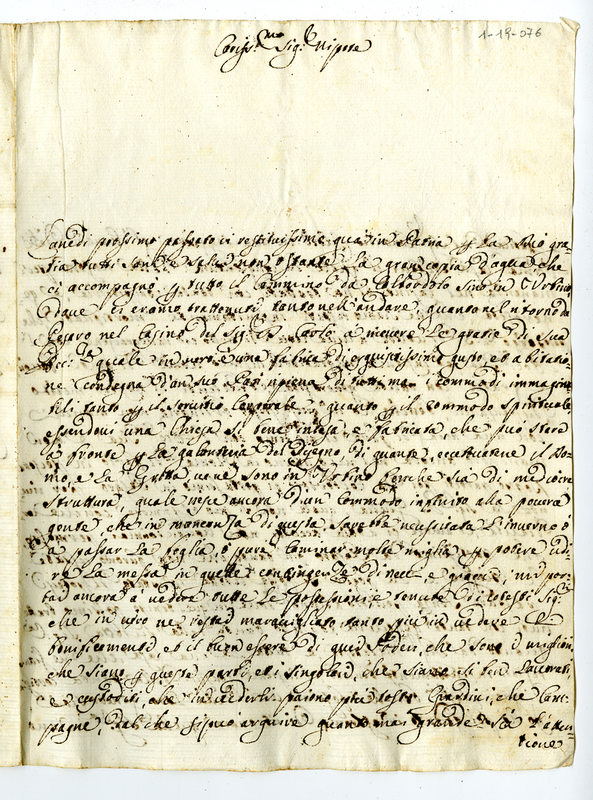 1-19-076
Cariss.mo Sig.r Nipote
prossimo passato ci restituissimo quà in Patria p la Dio gra-
tia tutti sani e salvi non ostante la gran copia d'aqua che
ci accompagnò p tutto il Cammino da sino in Urbino
dove ci eramo trattenuti tanto nell'andare, quanto nel ritorno da
Pesaro nel Casino del Sig.r Carlo à ricevere le gratie di Sua
Ecc.za quale in vero è una fabrica di esquisitissimo gusto et abitatio-
ne condegna d'un suo Pari ripiena di tutti ma i commodi immagina-
bili tanto p il servitio Corporale quanto p il commodo spirituale
essendovi una Chiesa sì bene intesa, e fabricata, che può stare
à fronte p la galanteria del disegno, di quante, eccettuatene il Do-
mo, e la Grotta ve ne sono in Urbino benche sia di mediocre
struttura, quale riesce ancora d'un commodo infinito alla povera
gente che in mancanza di questa sarebbe necessitata l'inverno ò
à passar la foglia, ò pure caminar molte miglia p potere udi-
re la messa in quelle contingenze di neve e giacci, mi por-
tai ancora à vedere tutte le possessioni e tenute di cotesti Sig.ri
che in vero ne restai maravigliato tanto più in vedere il
bonificamento, et il buon essere di quei Poderi, che sono i migliori
che siano p queste parti, et i singolari, che siano sì ben lavorati,
e custoditi, che in vederli paiono più tosto Giardini, che Cam-
pagne, dal che si può arguire quanto mai grande sia l'atten-
tione